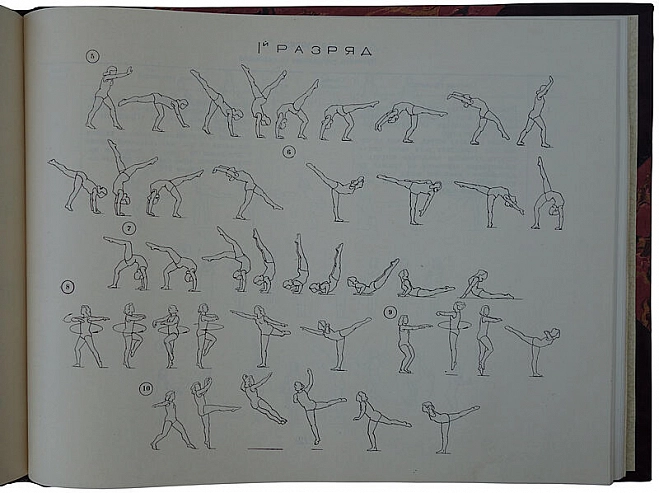 1й РАЗРЯД
5
6
7
8
9
10